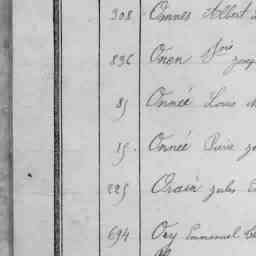 308 Onnes Albert
836 Onen
85 Onnée Louis
15. Onnée Pierre
225 Orain Jules
694 Ory Emmanuel